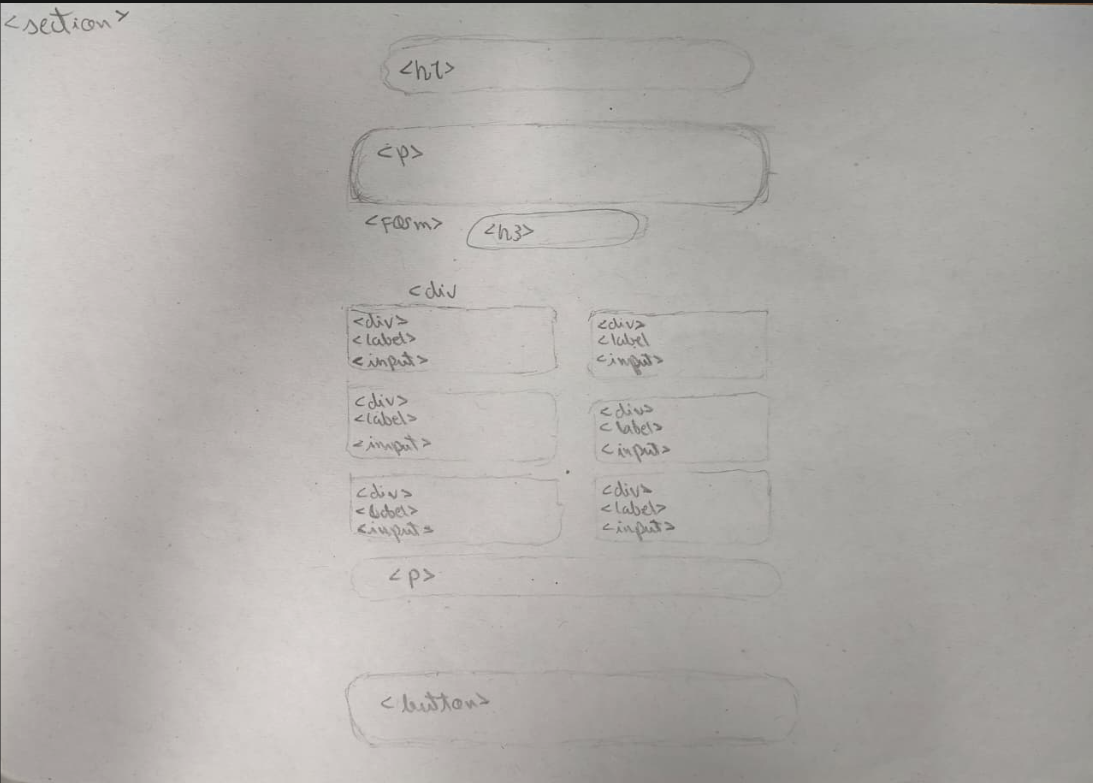 <section>
<h1>
<p>
<Form> <h3>
<div
<div>
<label>
<input>
<div>
<label
<input>
<div>
<label>
<input>
<div>
<label>
<input>
<div>
<label>
<input>
<div>
<label>
<input>
<p>
<button>